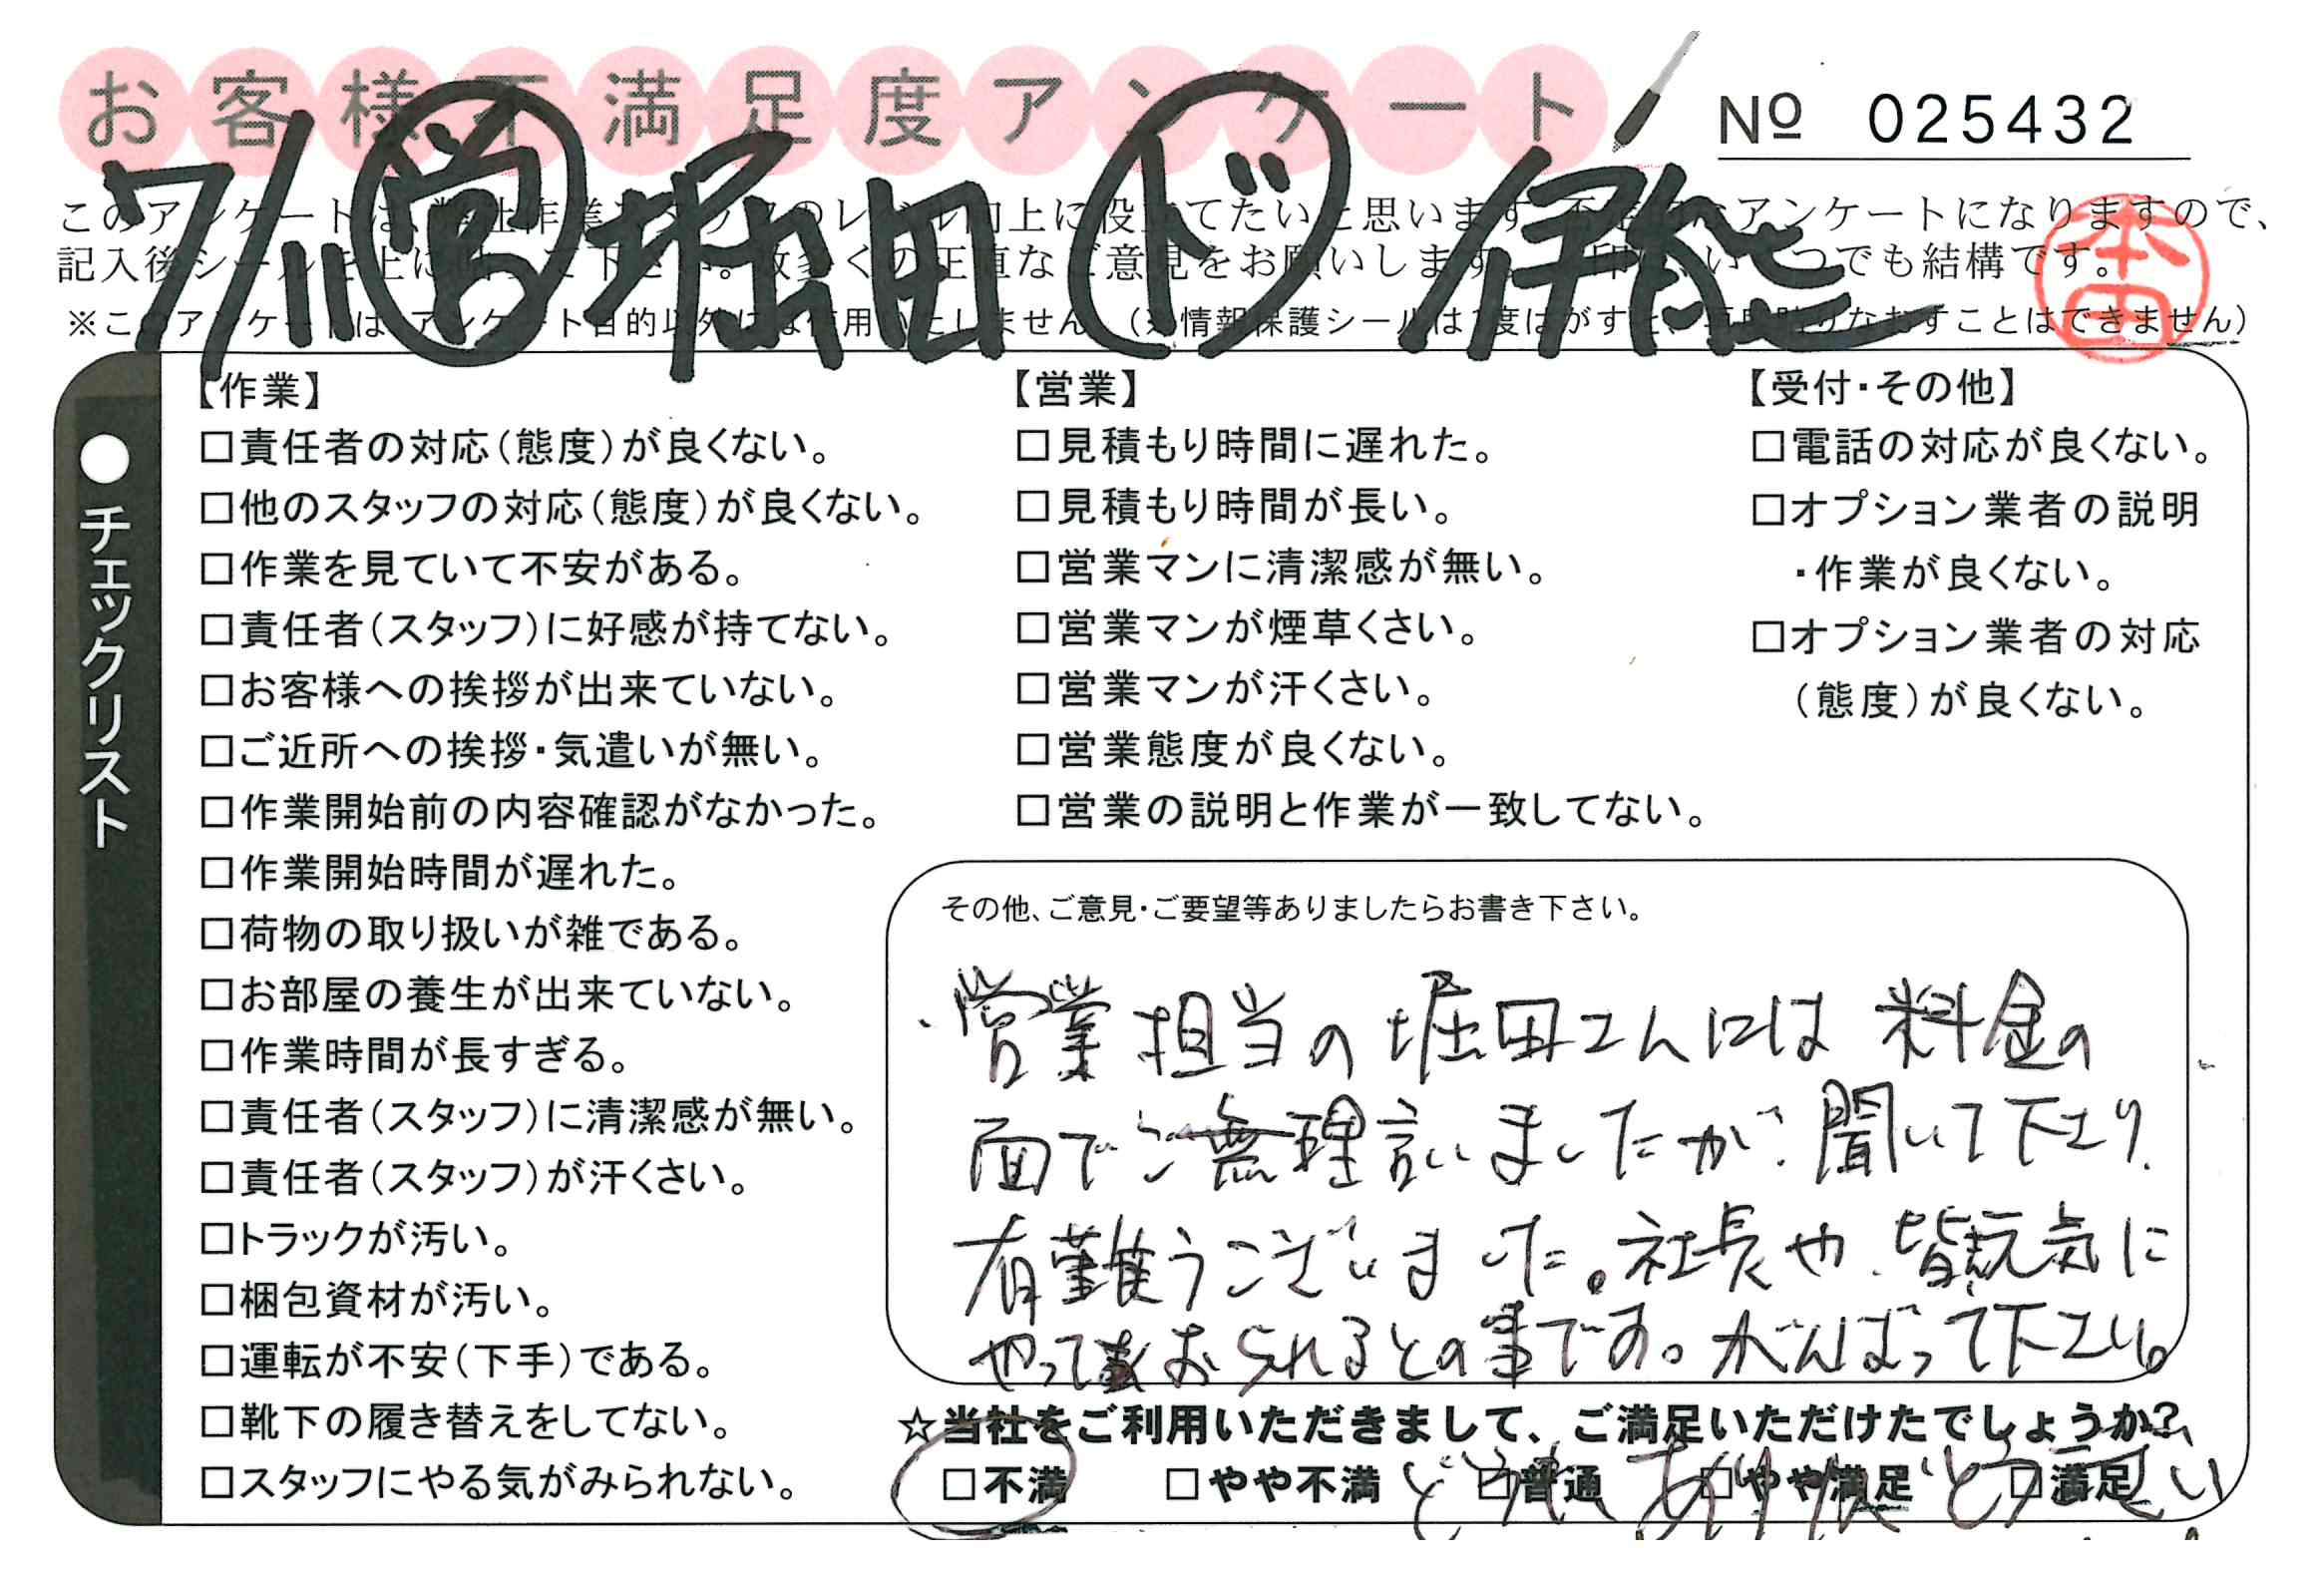 お客様不満足度アンケート
No 025432
7/11 営 堀田 ド 伊
本田
※このアンケートは、アンケート目的以外には使用いたしません。
【作業】
□責任者の対応(態度)が良くない。
□他のスタッフの対応(態度)が良くない。
□作業を見ていて不安がある。
□責任者(スタッフ)に好感が持てない。
□お客様への挨拶が出来ていない。
□ご近所への挨拶・気遣いが無い。
□作業開始前の内容確認がなかった。
□作業開始時間が遅れた。
□荷物の取り扱いが雑である。
□お部屋の養生が出来ていない。
□作業時間が長すぎる。
□責任者(スタッフ)に清潔感が無い。
□責任者(スタッフ)が汗くさい。
□トラックが汚い。
□梱包資材が汚い。
□運転が不安(下手)である。
□靴下の履き替えをしてない。
□スタッフにやる気がみられない。
【営業】
□見積もり時間に遅れた。
□見積もり時間が長い。
□営業マンに清潔感が無い。
□営業マンが煙草くさい。
□営業マンが汗くさい。
□営業態度が良くない。
□営業の説明と作業が一致してない。
【受付・その他】
□電話の対応が良くない。
□オプション業者の説明
・作業が良くない。
□オプション業者の対応
(態度)が良くない。
●チェックリスト
その他、ご意見・ご要望等ありましたらお書き下さい。
・営業担当の堀田さんには料金の
面でご無理言いましたが、聞いて下さり、
有難うございました。社長や、皆元気に
やっておられるとの事です。がんばって下さい。
☆当社をご利用いただきまして、ご満足いただけたでしょうか?
□不満 □やや不満 □普通 □やや満足 □満足